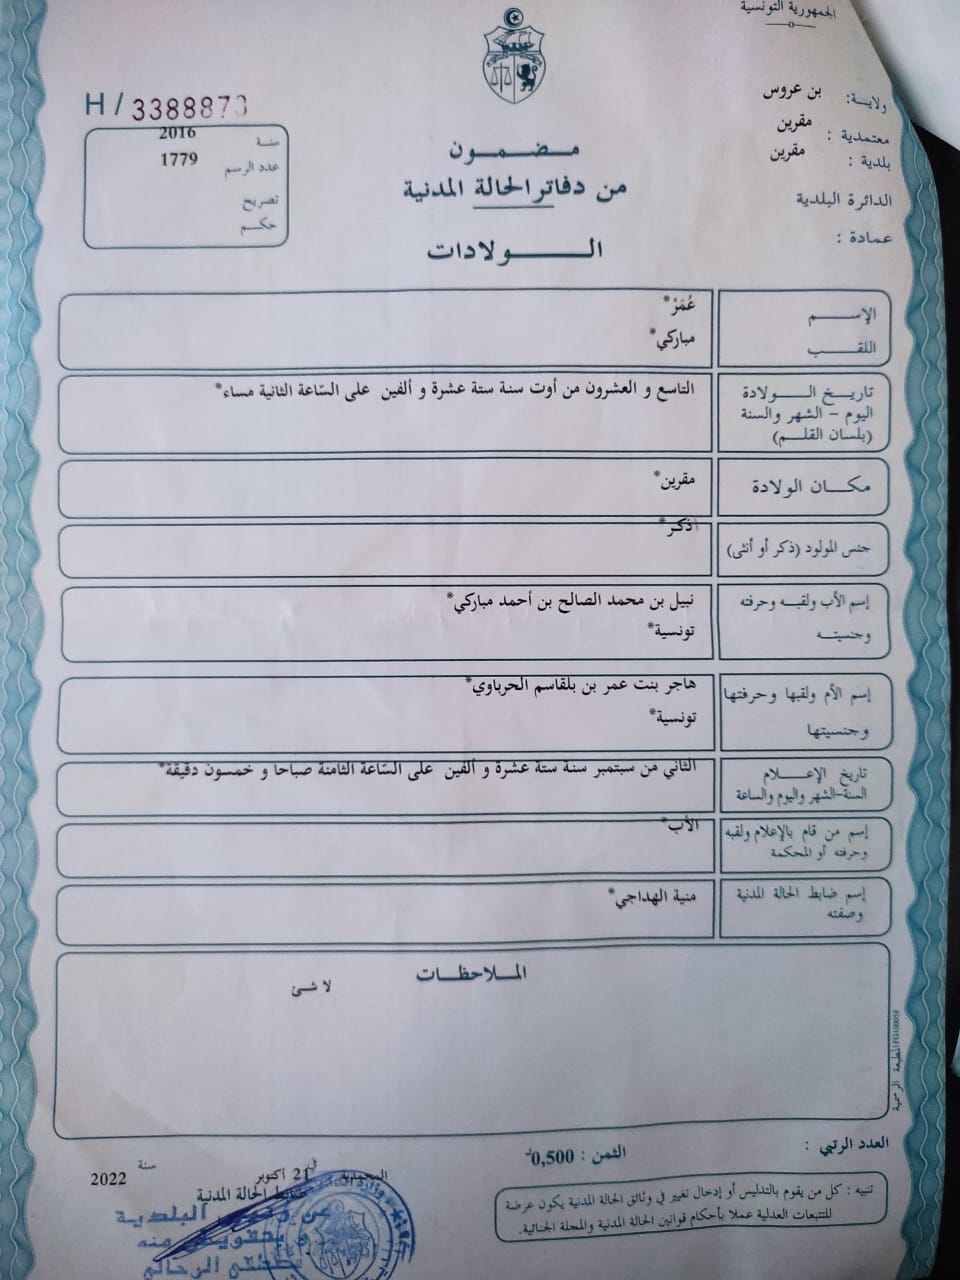 الجمهورية التونسية
ولاية: بن عروس
معتمدية : مقرين
بلدية : مقرين
الدائرة البلدية
عمادة :
H / 3388873
سنة 2016
عدد الرسم 1779
تصريح
حكم
مضمون
من دفاتر الحالة المدنية
الولادات
الإسم عُمَرْ*
اللقب مباركي*
تاريخ الولادة التاسع و العشرون من أوت سنة ستة عشرة و ألفين على السّاعة الثانية مساء*
اليوم - الشهر والسنة
(بلسان القلم)
مكان الولادة مقرين*
جنس المولود (ذكر أو أنثى) ذكر*
إسم الأب ولقبه وحرفته نبيل بن محمد الصالح بن أحمد مباركي*
وجنسيته تونسية*
إسم الأم ولقبها وحرفتها هاجر بنت عمر بن بلقاسم الحرباوي*
وجنسيتها تونسية*
تاريخ الإعلام الثاني من سبتمبر سنة ستة عشرة و ألفين على السّاعة الثامنة صباحا و خمسون دقيقة*
السنة-الشهر واليوم والساعة
إسم من قام بالإعلام ولقبه الأب*
وحرفته أو المحكمة
إسم ضابط الحالة المدنية منية الهداجي*
وصفته
الملاحظات
لا شئ
المطبعة الرسمية
العدد الرتبي :
الثمن : 0,500د
تنبيه : كل من يقوم بالتدليس أو إدخال تغيير في وثائق الحالة المدنية يكون عرضة
للتتبعات العدلية عملا بأحكام قوانين الحالة المدنية والمجلة الجنائية.
المحمدية في 21 أكتوبر سنة 2022
ضابط الحالة المدنية
البلدية
منه
الرحالي